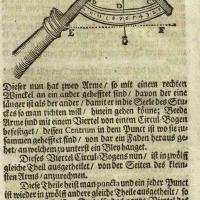 E D F
G
Dieser nun hat zwey Arme/ so mit einem rechten
Winckel an ein ander gefestiget sind/ davon der eine
länger ist als der ander/ damit er in die Seele des Stu-
ckes so man richten will/ hinein gehen könne: Beede
Arme sind mit einem Viertel von einem Circul-Bogen
befestiget/ dessen Centrum in dem Punct ist wo sie zu-
sammen gefestiget sind/ von dar ein Faden heraus ge-
het/ an welchem zu unterst ein Bley hanget.
Dieses Viertel Circul-Bogens nun/ ist in zwölff
gleiche Theil ausgetheilet/ von der Seiten des klein-
sten Arms/ anzurechnen.
Diese Theile heist man puncta und ein jeder Punct
ist wieder in zwölff andere gleiche Theile ausgetheilt/ so